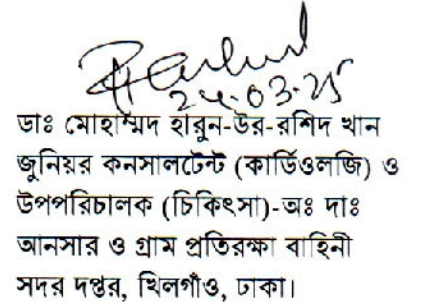 24.03.25
ডাঃ মোহাম্মদ হারুন-উর-রশিদ খান
জুনিয়র কনসালটেন্ট (কার্ডিওলজি) ও
উপপরিচালক (চিকিৎসা)-অঃ দাঃ
আনসার ও গ্রাম প্রতিরক্ষা বাহিনী
সদর দপ্তর, খিলগাঁও, ঢাকা।